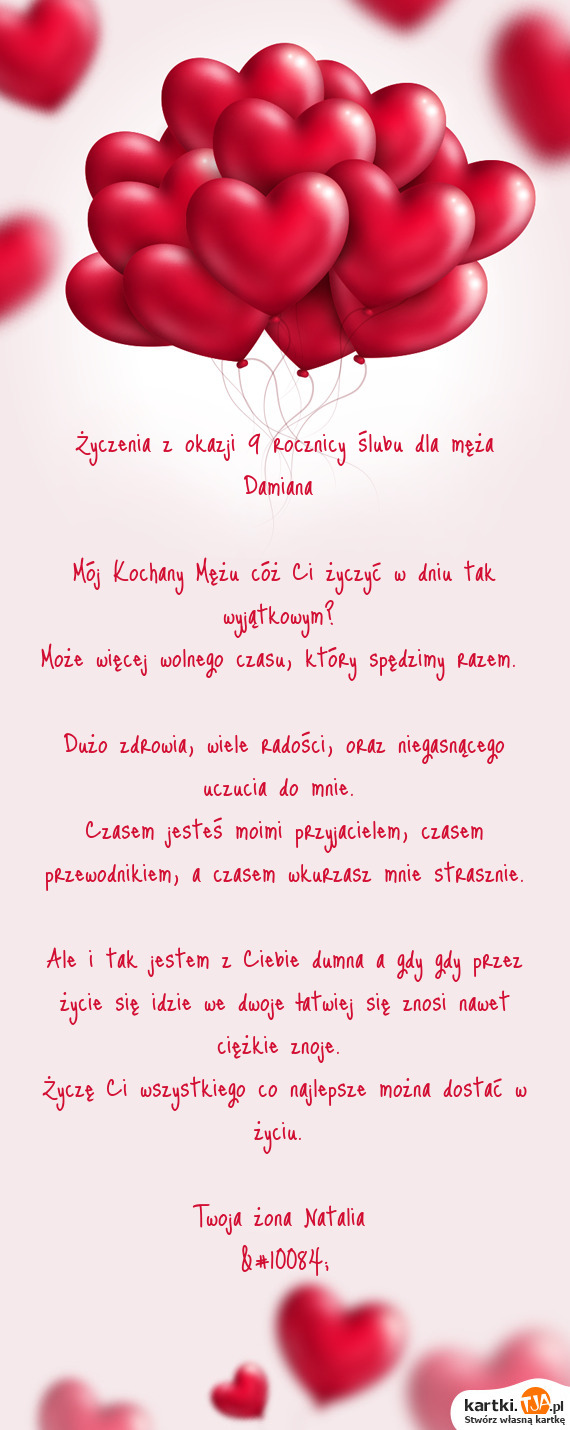 Życzenia z okazji 9 rocznicy ślubu dla męża
Damiana
Mój Kochany Mężu cóż Ci życzyć w dniu tak
wyjątkowym?
Może więcej wolnego czasu, który spędzimy razem.
Dużo zdrowia, wiele radości, oraz niegasnącego
uczucia do mnie.
Czasem jesteś moimi przyjacielem, czasem
przewodnikiem, a czasem wkurzasz mnie strasznie.
Ale i tak jestem z Ciebie dumna a gdy gdy przez
życie się idzie we dwoje łatwiej się znosi nawet
ciężkie znoje.
Życzę Ci wszystkiego co najlepsze można dostać w
życiu.
Twoja żona Natalia
&#10084;
kartki.TJA.pl
Stwórz własną kartkę